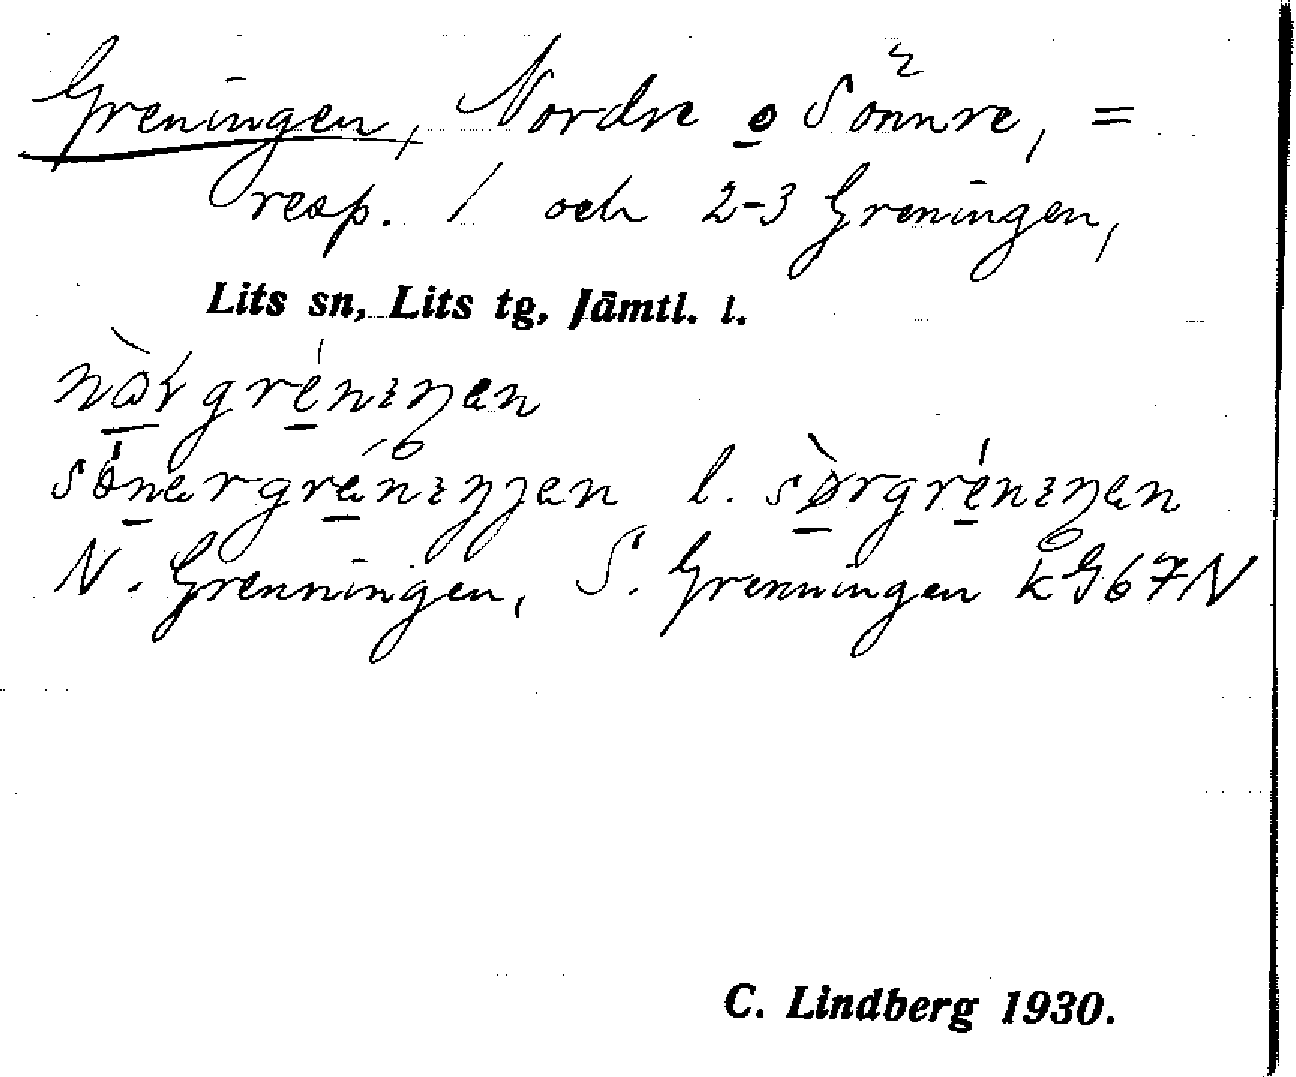 Greningen, Nordre o Sönnre, =
resp. 1 och 2-3 Greningen,
Lits sn, Lits tg, Jämtl. l.
l.
N. Grenningen, S. Grenningen kG67N
C. Lindberg 1930.